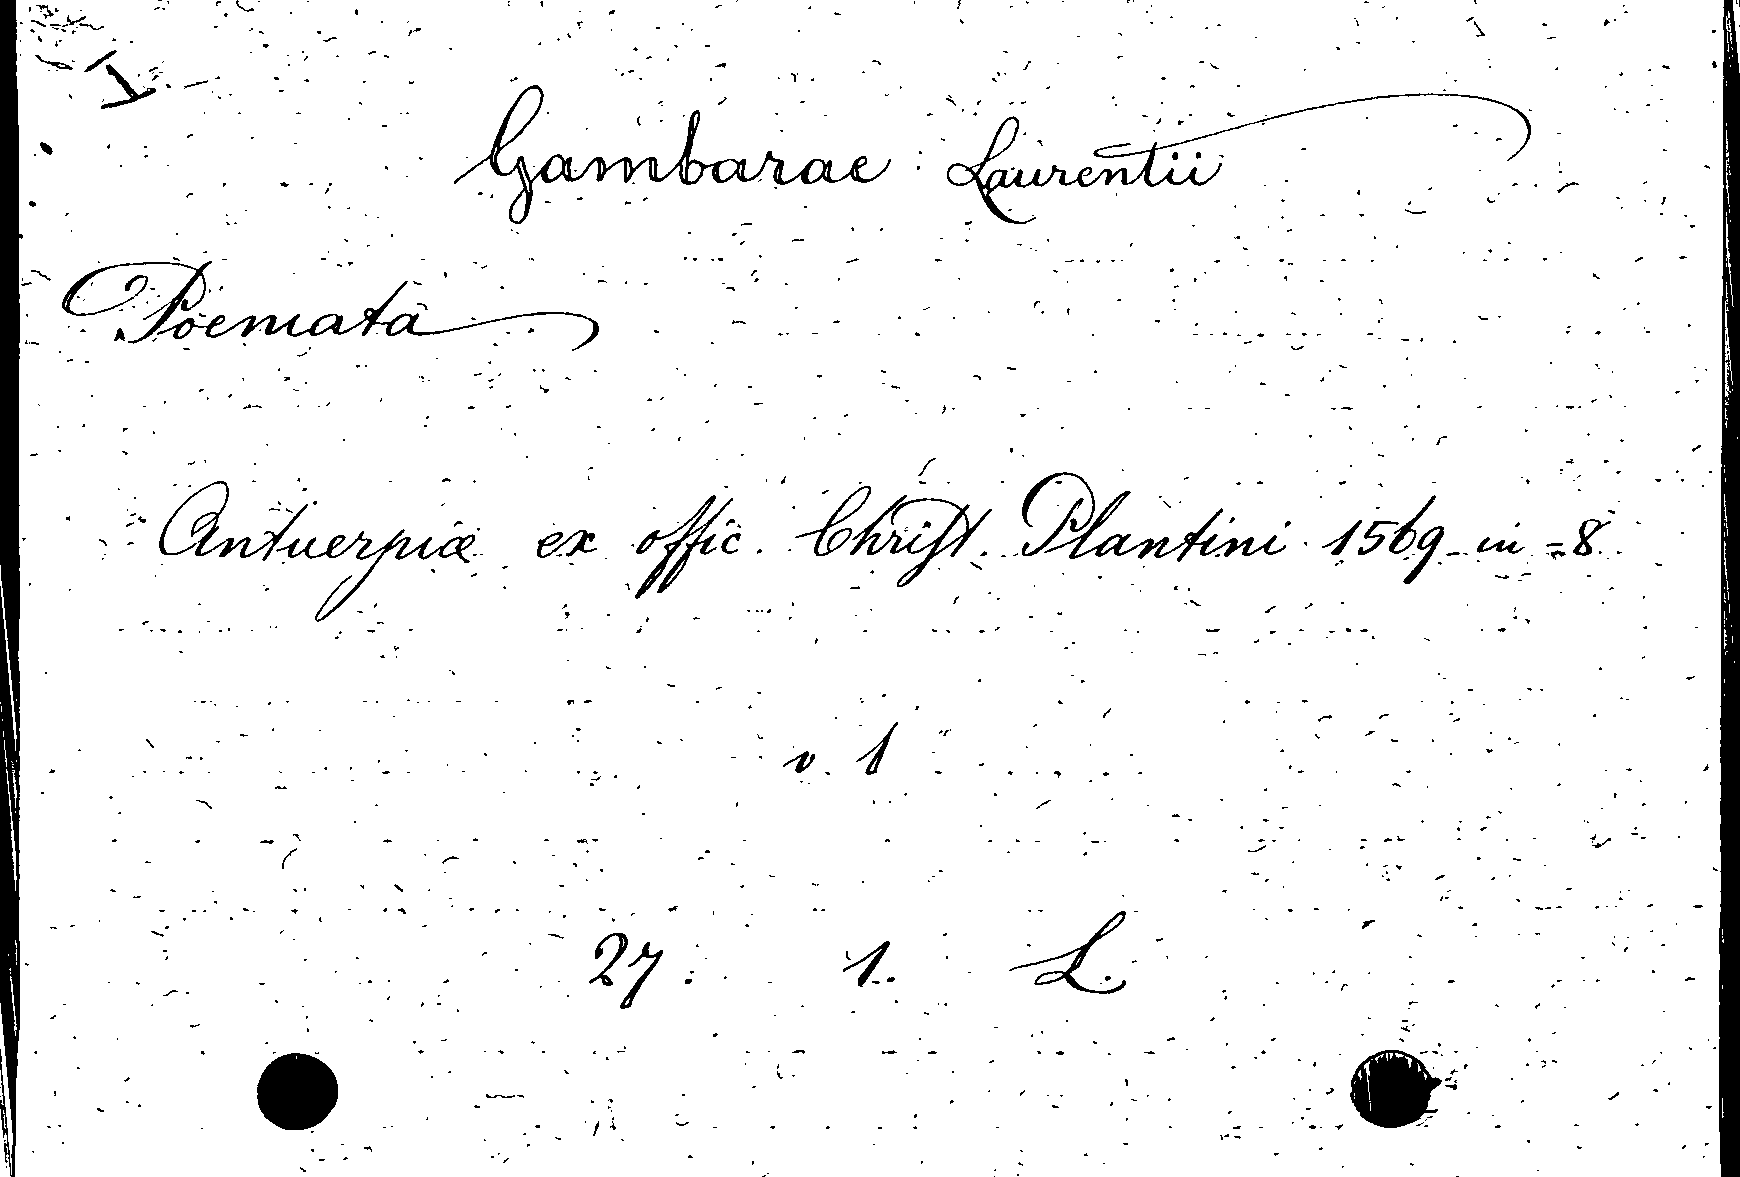 I
Gambarae Laurentii
Poemata
Antuerpiæ ex offic. Christ. Plantini 1569 in-8
v. 1
27. 1. L.